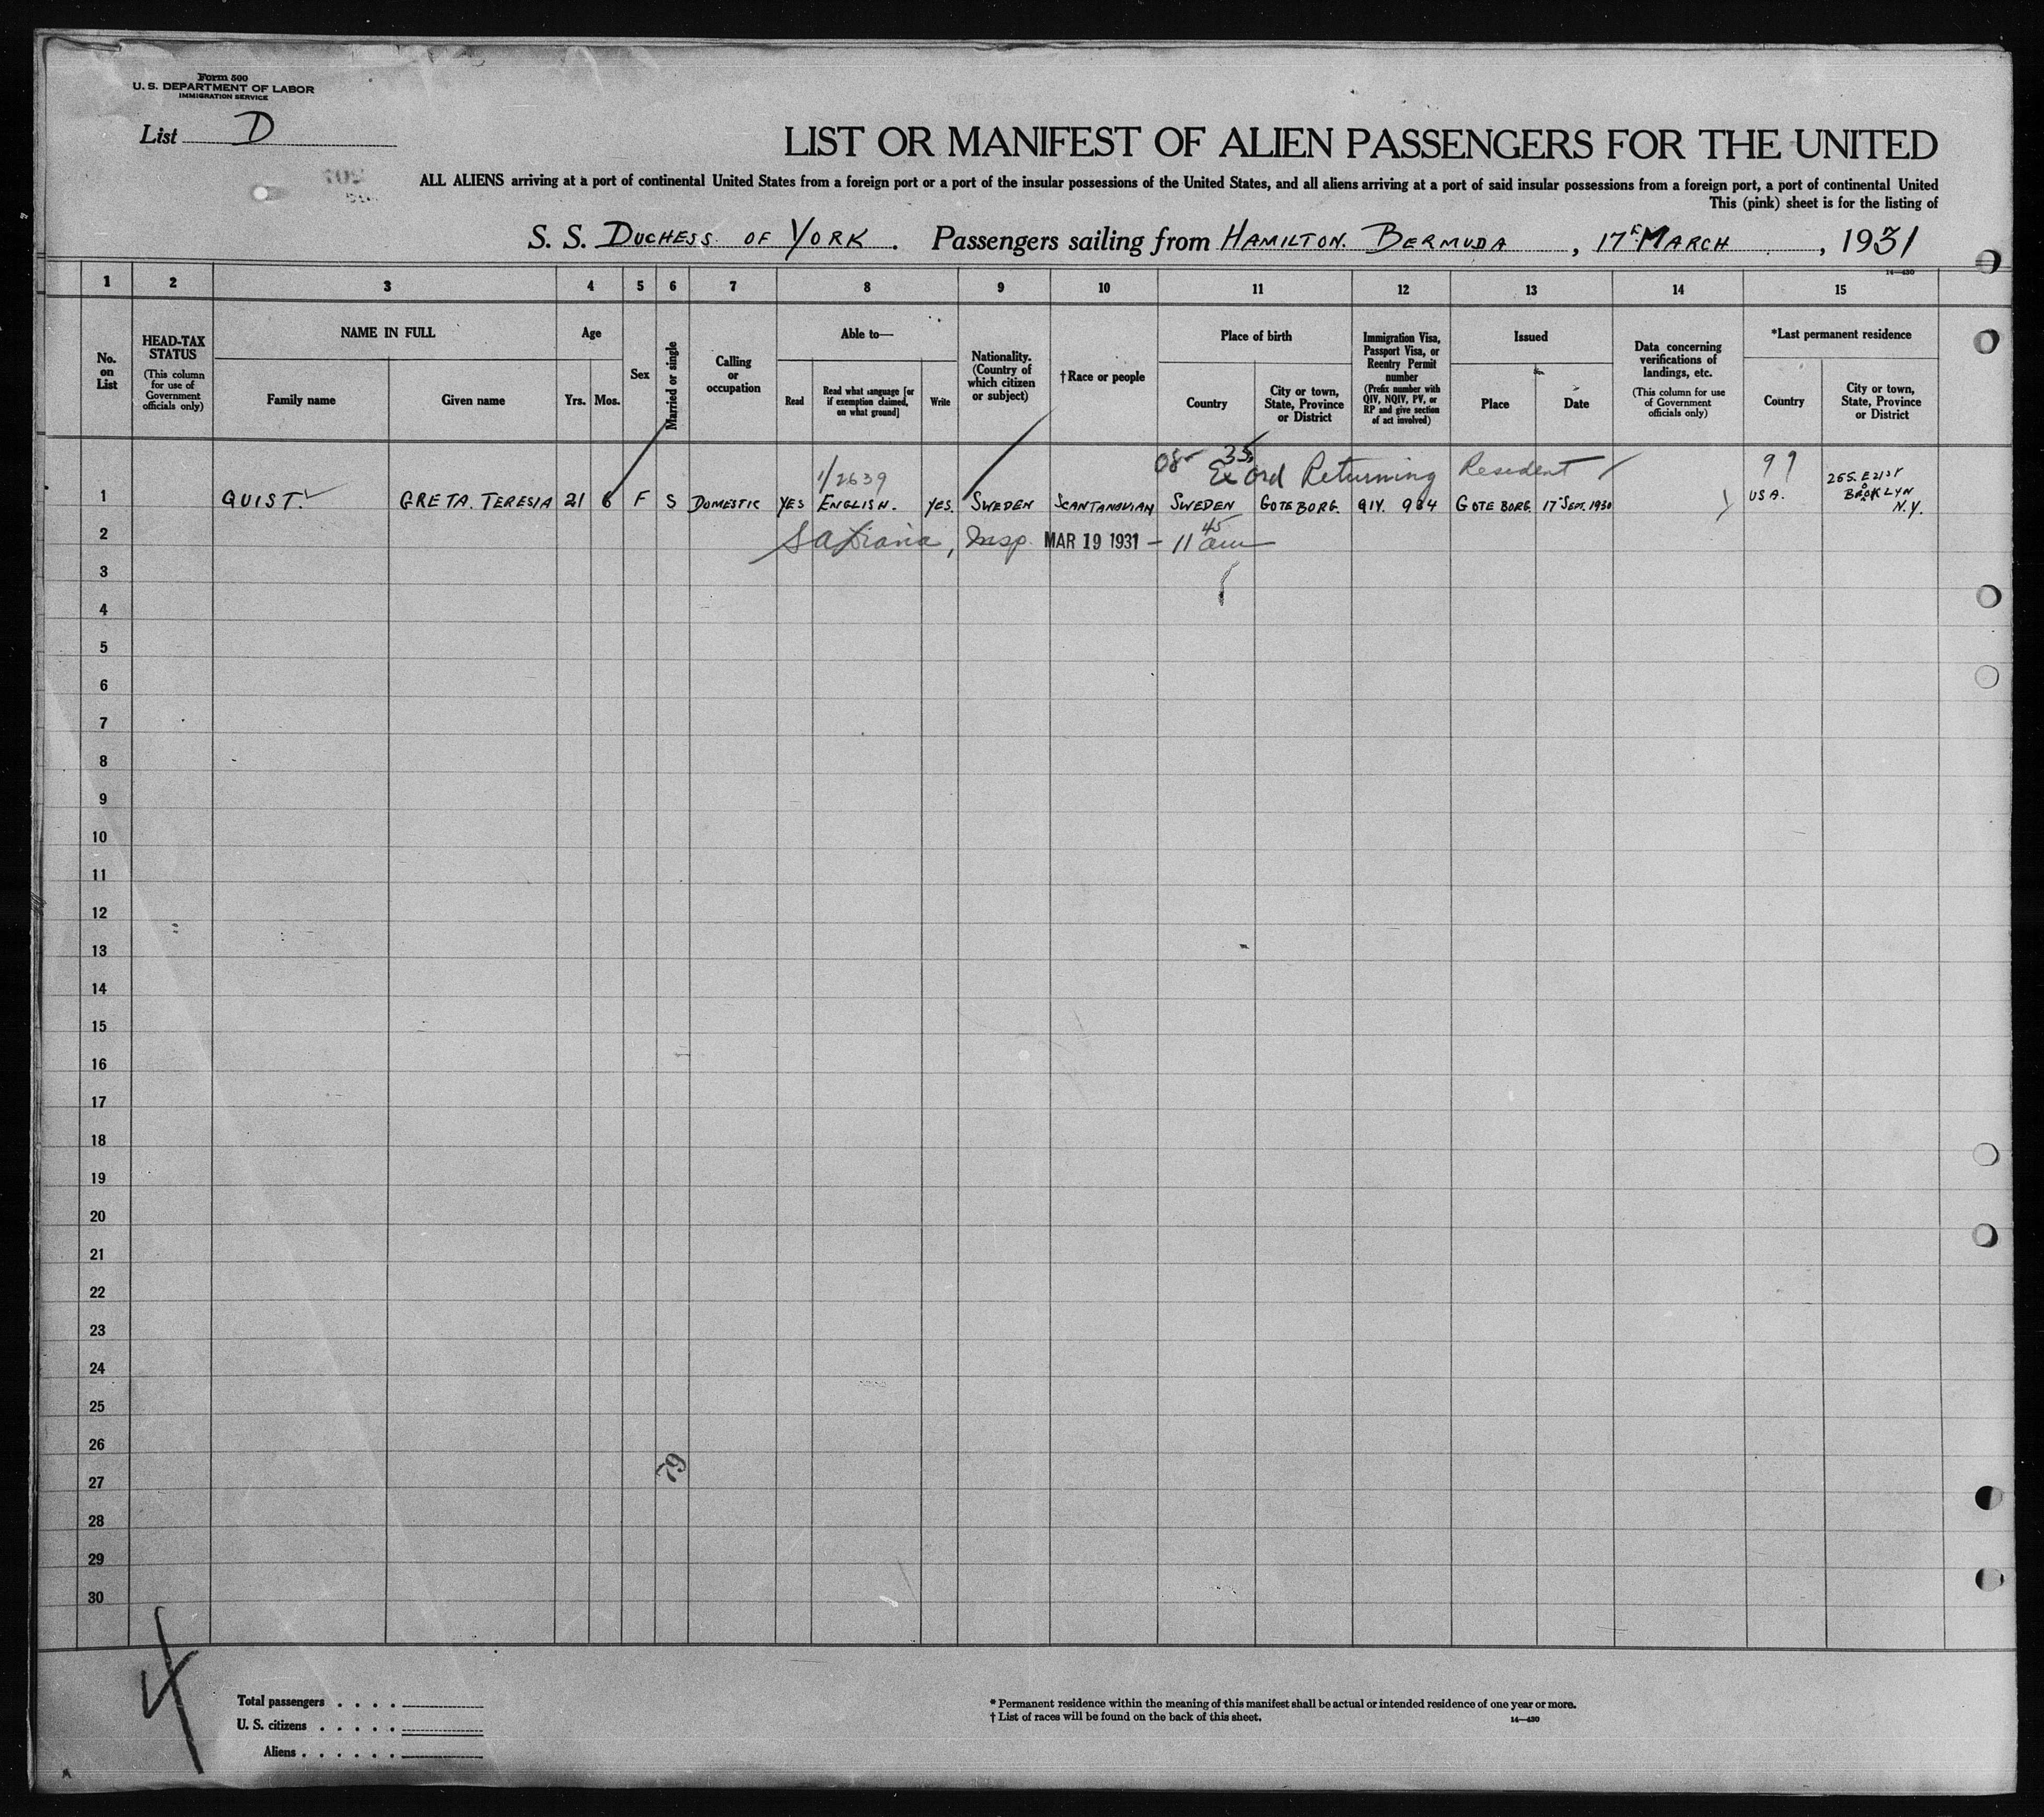 Form 500
U. S. DEPARTMENT OF LABOR
IMMIGRATION SERVICE
List D
LIST OR MANIFEST OF ALIEN PASSENGERS FOR THE UNITED
ALL ALIENS arriving at a port of continental United States from a foreign port or a port of the insular possessions of the United States, and all aliens arriving at a port of said insular possessions from a foreign port, a port of continental United
This (pink) sheet is for the listing of
S. S. DUCHESS OF YORK. Passengers sailing from HAMILTON. BERMUDA, 17th MARCH, 1931
14—430
1 2 3 4 5 6 7 8 9 10 11 12 13 14 15
No. on List
HEAD-TAX STATUS
(This column for use of Government officials only)
NAME IN FULL
Family name
Given name
Age
Yrs. Mos.
Sex
Married or single
Calling or occupation
Able to—
Read
Read what language [or if exemption claimed, on what ground]
Write
Nationality. (Country of which citizen or subject)
†Race or people
Place of birth
Country
City or town, State, Province or District
Immigration Visa, Passport Visa, or Reentry Permit number
(Prefix number with QIV, NQIV, PV, or RP and give section of act involved)
Issued
Place
Date
Data concerning verifications of landings, etc.
(This column for use of Government officials only)
*Last permanent residence
Country
City or town, State, Province or District
08- 35
Ex ord Returning Resident
99
1/2639
1 QUIST. GRETA. TERESIA 21 6 F S DOMESTIC YES ENGLISH. YES. SWEDEN SCANTANAVIAN SWEDEN GOTEBORG. QIV. 984 GOTEBORG. 17 SEPT. 1930 USA. 255. E 21ST BROOKLYN N.Y.
2 Insp. MAR 19 1931 - 11 45 am
3
4
5
6
7
8
9
10
11
12
13
14
15
16
17
18
19
20
21
22
23
24
25
26
79
27
28
29
30
4
Total passengers . . . .
U. S. citizens . . . . .
Aliens . . . . . .
* Permanent residence within the meaning of this manifest shall be actual or intended residence of one year or more.
† List of races will be found on the back of this sheet.
14—430